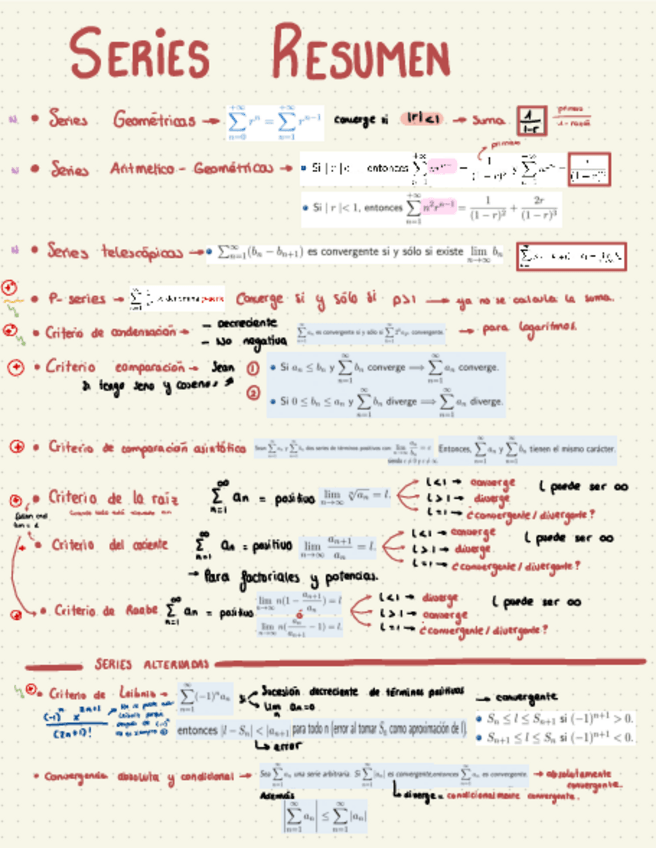 SERIES RESUMEN
• Series Geométricas → \sum_{n=0}^{+\infty} r^n = \sum_{n=1}^{+\infty} r^{n-1} converge si |r|<1 → Suma 1/(1-r)
• Series Aritmetico - Geométricas → • Si | r |< 1 entonces
primero
• Si | r |< 1, entonces \sum_{n=1}^{+\infty} n^2 r^{n-1} = \frac{1}{(1-r)^2} + \frac{2r}{(1-r)^3}
• Series telescópicas → • \sum_{n=1}^{\infty} (b_n − b_{n+1}) es convergente si y sólo si existe \lim_{n→∞} b_n
• P- series → Converge si y sólo si p>1 → ya no se calcula la suma.
• Criterio de condensación → – Decreciente
– No negativa
es convergente si y sólo si convergente. → para logaritmos.
• Criterio comparación → Sean ① • Si a_n ≤ b_n y \sum_{n=1}^{\infty} b_n converge ⟹ \sum_{n=1}^{\infty} a_n converge.
Si tengo seno y coseno
② • Si 0 ≤ b_n ≤ a_n y \sum_{n=1}^{\infty} b_n diverge ⟹ \sum_{n=1}^{\infty} a_n diverge.
• Criterio de comparación asintótica Sean dos series de términos positivos con Entonces, \sum_{n=1}^{\infty} a_n y \sum_{n=1}^{\infty} b_n tienen el mismo carácter.
• Criterio de la raíz \sum_{n=1}^{\infty} an = positivo \lim_{n→∞} \sqrt[n]{a_n} = l.
l<1 → converge
l>1 → diverge
l=1 → ¿convergente/divergente?
l puede ser ∞
• Criterio del cociente \sum_{n=1}^{\infty} an = positivo \lim_{n→∞} \frac{a_{n+1}}{a_n} = l.
l<1 → converge
l>1 → diverge
l=1 → ¿convergente/divergente?
l puede ser ∞
→ Para factoriales y potencias.
• Criterio de Raabe \sum_{n=1}^{\infty} an = positivo \lim_{n→∞} n(1 − \frac{a_{n+1}}{a_n}) = l
ó
\lim_{n→∞} n(\frac{a_n}{a_{n+1}} − 1) = l.
l<1 → diverge
l>1 → converge
l=1 → ¿convergente/divergente?
l puede ser ∞
SERIES ALTERNADAS
• Criterio de Leibniz → \sum_{n=1}^{\infty} (-1)^n a_n si Sucesión decreciente de términos positivos
Lim an=0
→ convergente
\frac{(-1)^n x^{2n+1}}{(2n+1)!}
entonces |l − S_n| < |a_{n+1}| para todo n (error al tomar S_n como aproximación de l).
↳ error
• S_n ≤ l ≤ S_{n+1} si (−1)^{n+1} > 0.
• S_{n+1} ≤ l ≤ S_n si (−1)^{n+1} < 0.
• Convergencia absoluta y condicional → Sea \sum_{n=1}^{\infty} a_n una serie arbitraria. Si \sum_{n=1}^{\infty} |a_n| es convergente, entonces \sum_{n=1}^{\infty} a_n es convergente. → absolutamente
convergente.
↳ diverge = condicionalmente convergente.
Además
|\sum_{n=1}^{\infty} a_n| ≤ \sum_{n=1}^{\infty} |a_n|